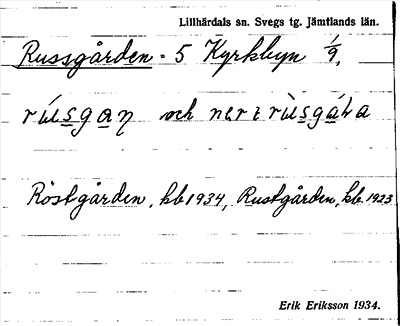 Lillhärdals sn. Svegs tg. Jämtlands län.
Russgården - 5 Kyrkbyn 1/9,
rúsgaṇ och
Röstgården, kb 1934, Rustgården, kb. 1923
Erik Eriksson 1934.